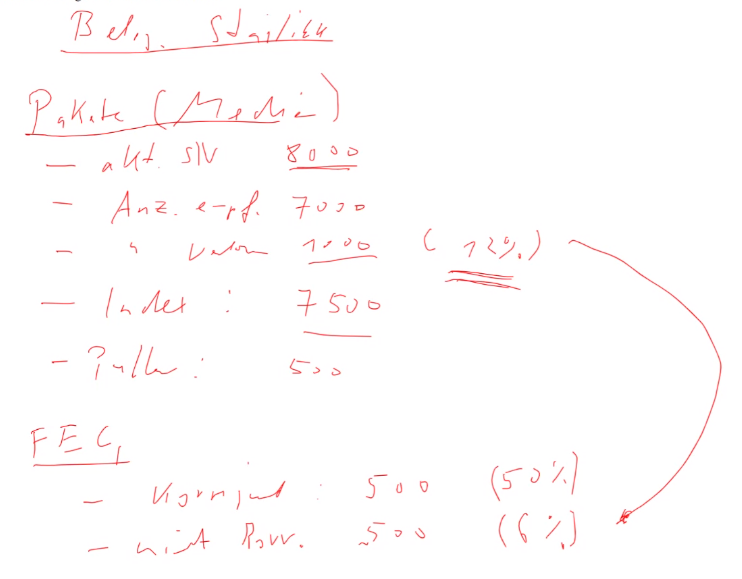 Pakete (Media)
- akt. SN 8000
- Anz. empf. 7000
- " verlor. 1000 (12%)
- Index : 7500
- Puffer : 500
FEC,
- Korrigiert : 500 (50%)
- nicht korr. 500 (6%)